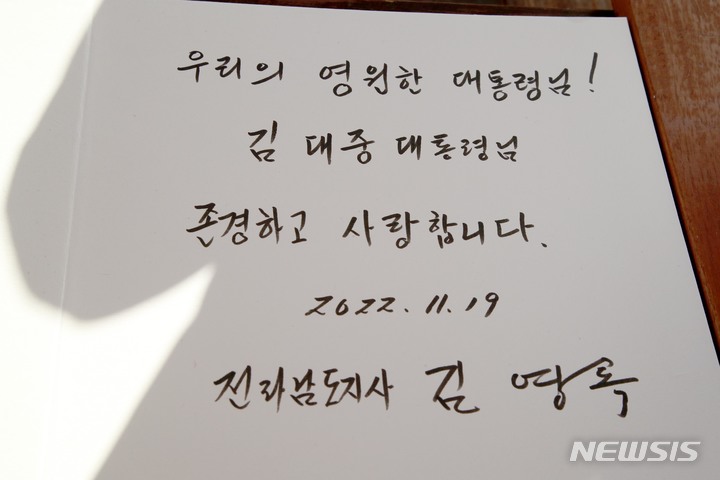 우리의 영원한 대통령님!
김대중 대통령님
존경하고 사랑합니다.
2022.11.19
전라남도지사 김영록
NEWSIS